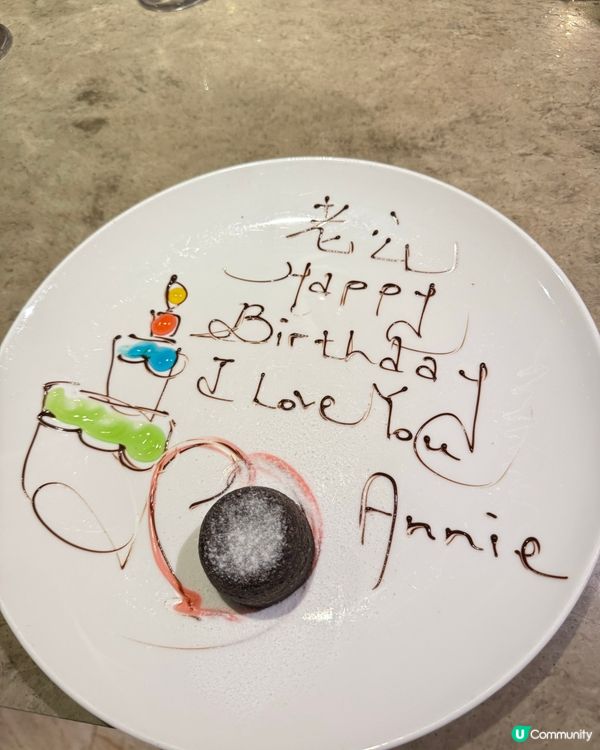 老江
Happy
Birthday
I Love You
Annie
U Community